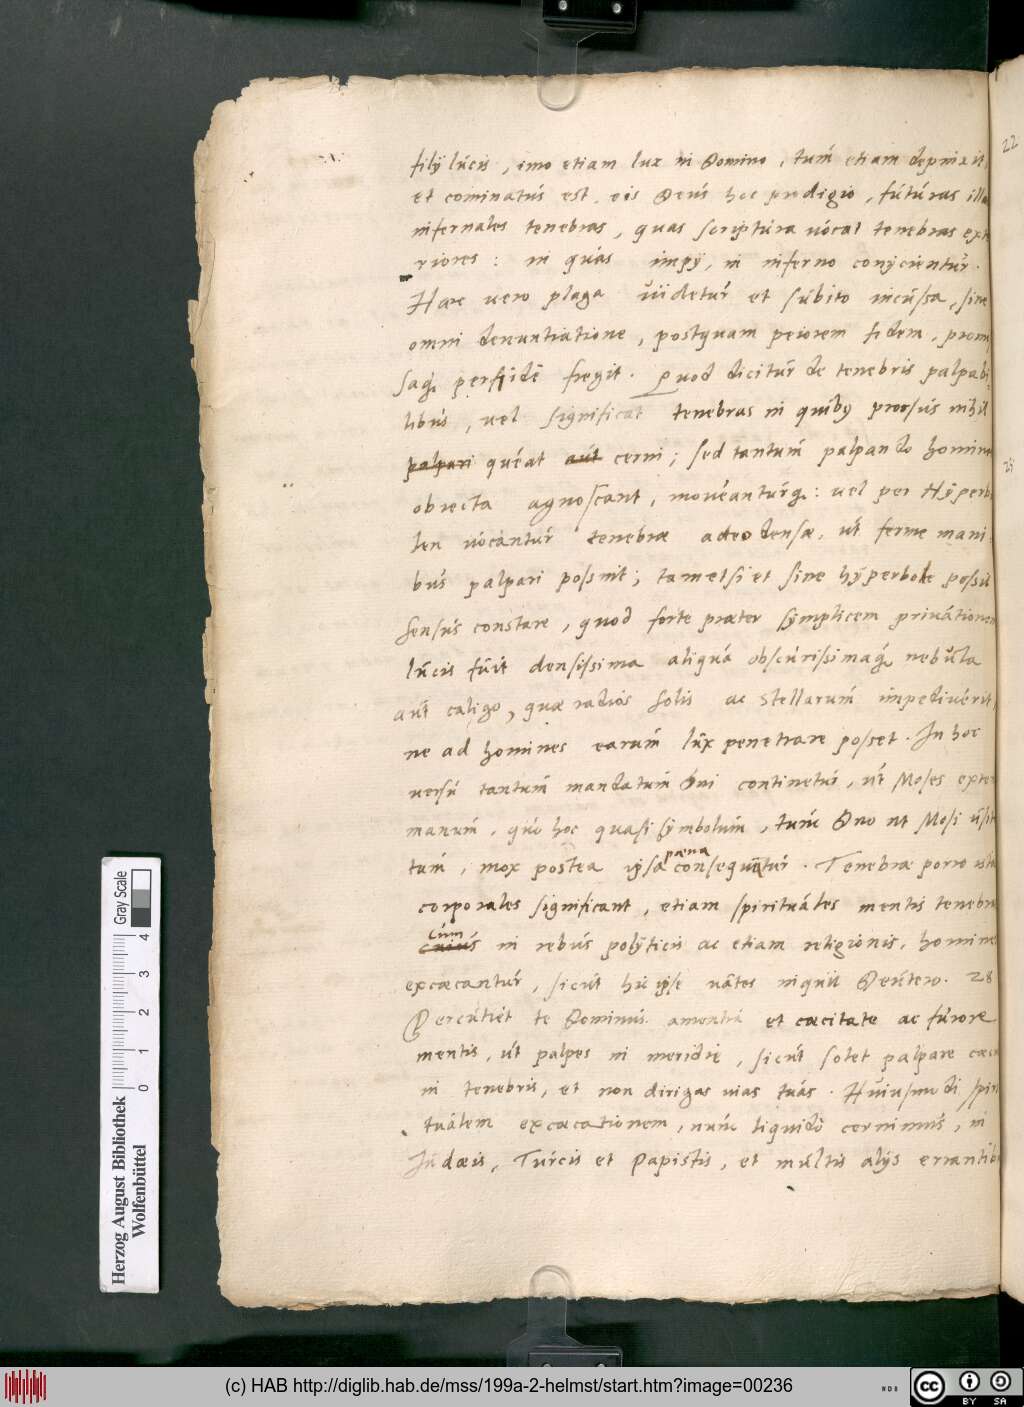 filÿ lucis, imo etiam lux in Domino, tum etiam depinxit,
et cominatus est eis Deus hoc prodigio, futuras illa
infernales tenebras, quas scriptura vocat tenebras ext
riores: in quas impÿ, in inferno conÿcientur.
Haec vero plaga videtur et subito incussa, sine
omni denuntiatione, postquam peiorem fidem, prom
saq. perfide fregit. Quod dicitur de tenebris palpabi
libus, vel significat tenebras in quibus prorsus nihil
palpari queat aut cerni; sed tantum palpando homine
obiecta agnoscant, moveanturq.: vel per Hÿperbo
len vocantur tenebrae adeo densae, ut ferme mani
bus palpari possint; tametsi et sine hÿperbole possit
sensus constare, quod forte praeter sÿmplicem privationem
lucis fuit densissima aliqua obscurissimaq. nebula
aut caligo, quae radios solis ac stellarum impediverit,
ne ad homines earum lux penetrare posset. In hoc
versu tantum mandatum Dni continetur, ut Moses exte
manum, quo hoc quasi sÿmbolum, tum Dno ut Mosi usita
tum, mox postea ipsa poena consequutur. Tenebrae porro istae
corporales significant, etiam spirituales mentis tenebra
cuius Cum in rebus polÿticis ac etiam religionis, homines
excaecantur, sicut hic ipse vates inquit Deutero. 28
Percutiet te Dominus amentia et caecitate ac furore
mentis, ut palpes in meridie, sicut solet palpare caecu
in tenebris, et non dirigas vias tuas. Huiusmodi spiri
tualem excaecationem, nunc liquido cernimus, in
Iudaeis, Turcis et Papistis, et multis alÿs errantibu
22
Gray Scale
4
3
2
1
0
Herzog August Bibliothek
Wolfenbüttel
(c) HAB http://diglib.hab.de/mss/199a-2-helmst/start.htm?image=00236
CC BY SA